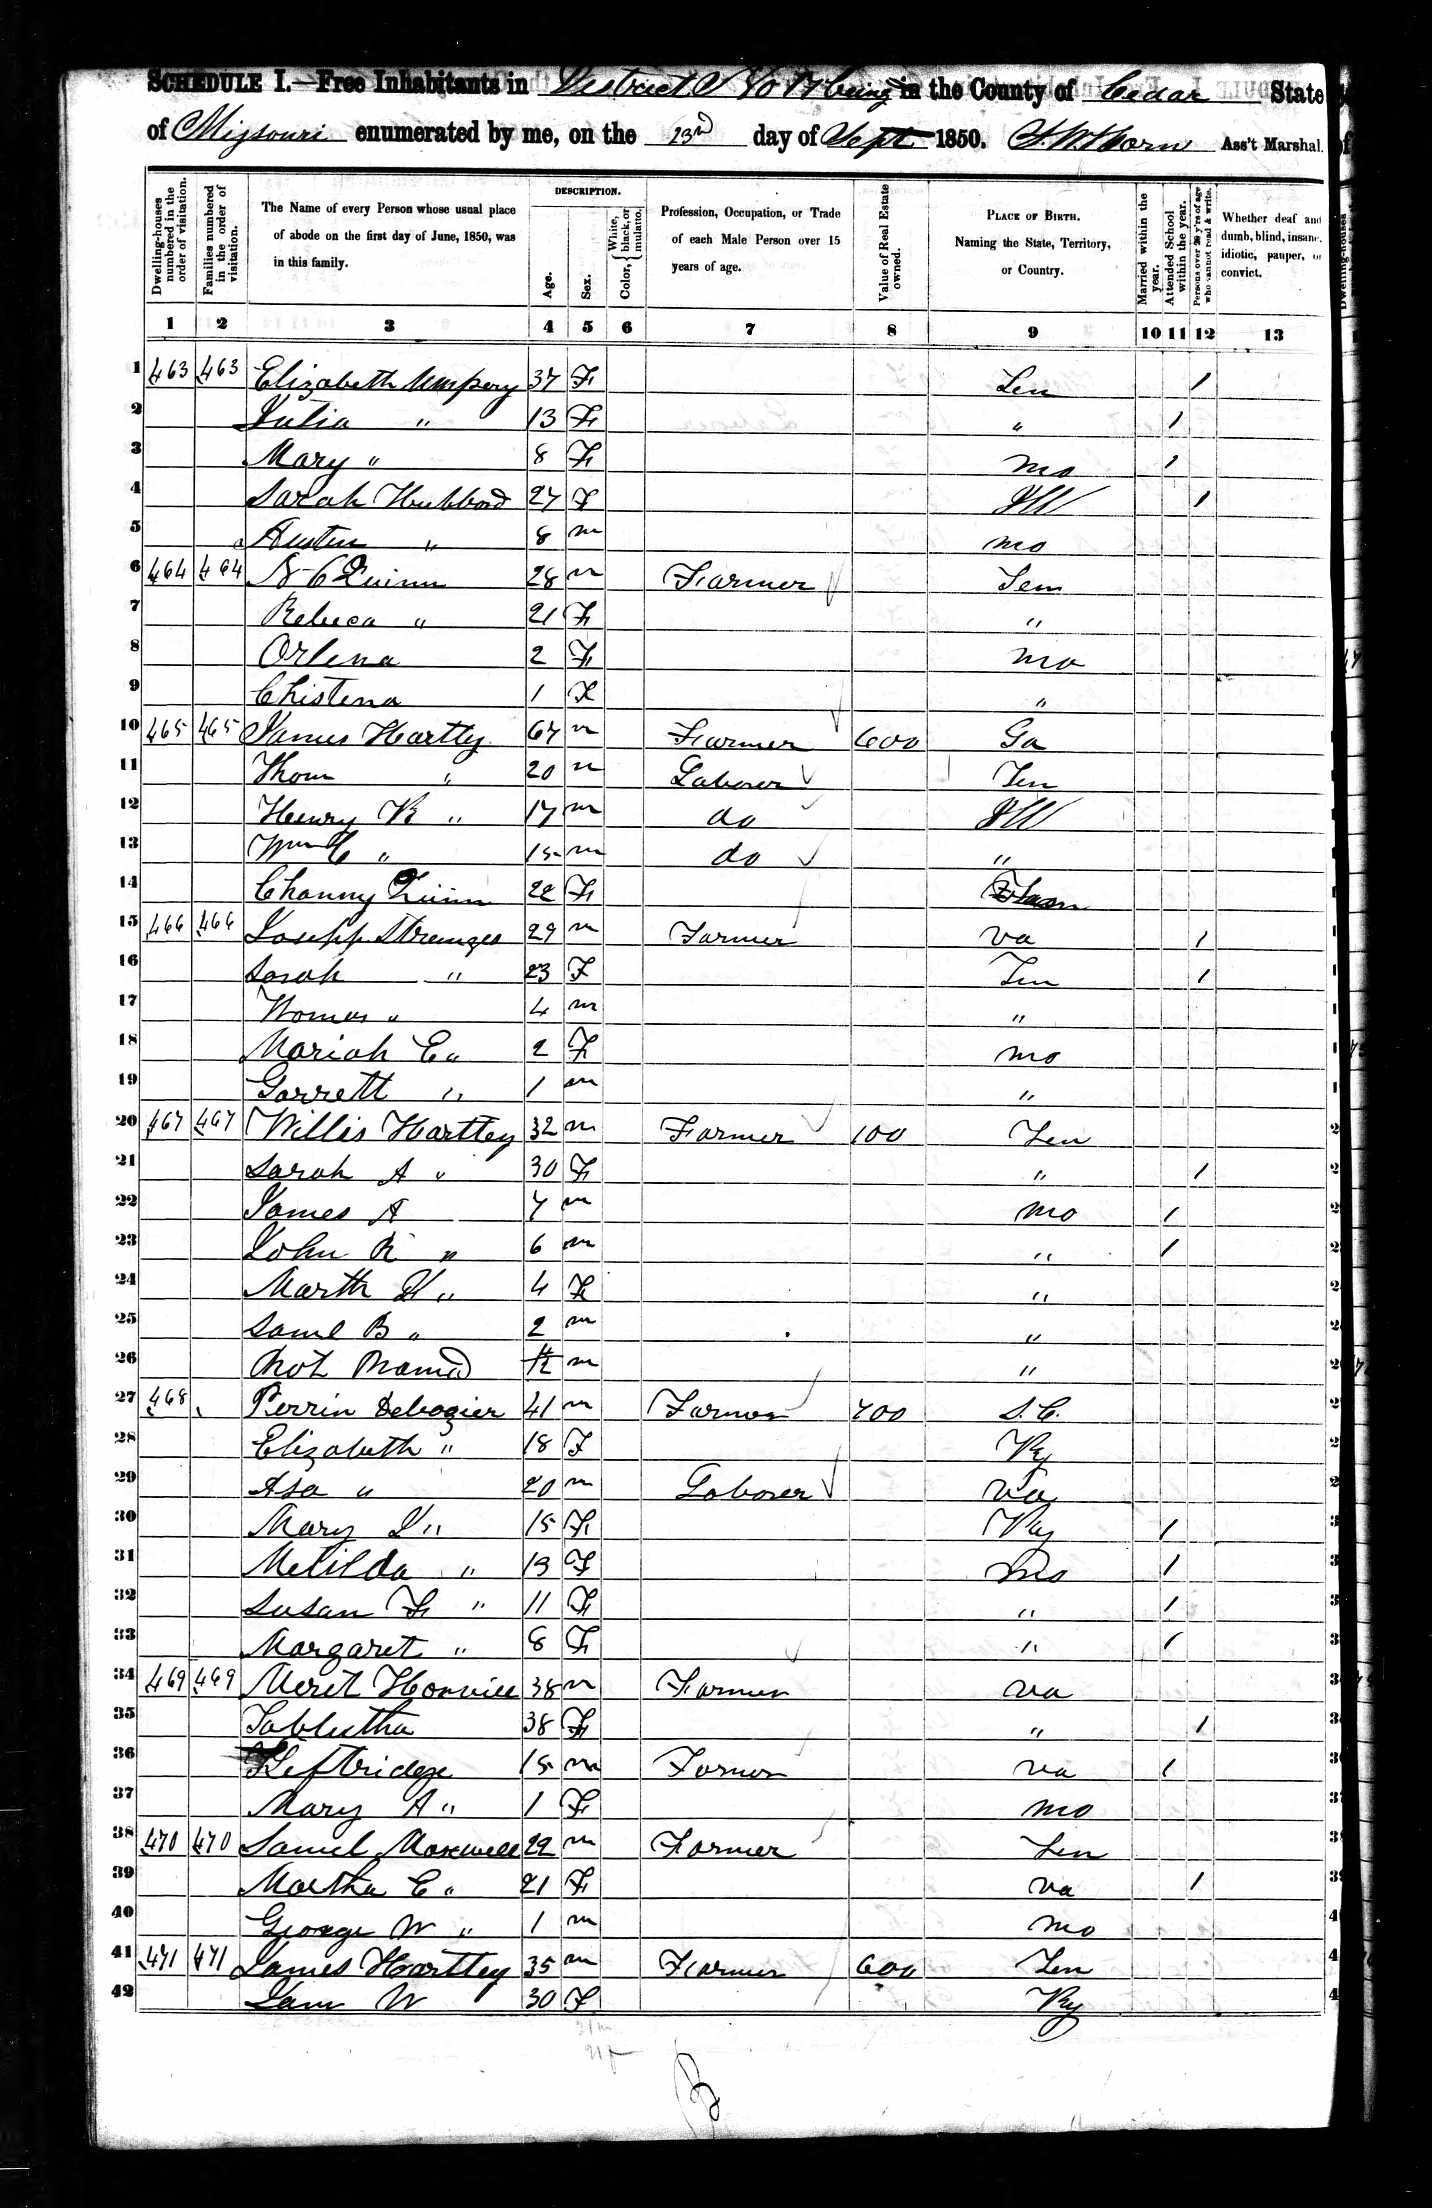 SCHEDULE I.—Free Inhabitants in District No 17 being in the County of Cedar State
of Missouri enumerated by me, on the 23rd day of Sept 1850. Ass't Marshal.
Dwelling-houses numbered in the order of visitation.
Families numbered in the order of visitation.
The Name of every Person whose usual place of abode on the first day of June, 1850, was in this family.
DESCRIPTION.
Age.
Sex.
Color, White, black, or mulatto.
Profession, Occupation, or Trade of each Male Person over 15 years of age.
Value of Real Estate owned.
PLACE OF BIRTH.
Naming the State, Territory, or Country.
Married within the year.
Attended School within the year.
Persons over 20 y'rs of age who cannot read & write.
Whether deaf and dumb, blind, insane, idiotic, pauper, or convict.
1 2 3 4 5 6 7 8 9 10 11 12 13
1 463 463 Elizabeth 37 F Ten 1
2 Julia " 13 F " 1
3 Mary " 8 F Mo 1
4 Sarah Hubbard 27 F Ill 1
5 Austin " 8 m Mo
6 464 464 N C Quinn 28 m Farmer Ten
7 Rebeca " 21 F "
8 Orlena 2 F Mo
9 Chistena 1 F "
10 465 465 James Hartley 67 m Farmer 600 Ga
11 Thom " 20 m Laborer Ten
12 Henry R " 17 m do Ill
13 Wm C " 15 m do "
14 Channy Quinn 22 F
15 466 466 Joseph 29 m Farmer Va 1
16 Sarah " 23 F Ten 1
17 Thomas " 4 m "
18 Mariah E " 2 F Mo
19 Garrett " 1 m "
20 467 467 Willis Hartley 32 m Farmer 100 Ten
21 Sarah A " 30 F " 1
22 James A 7 m Mo 1
23 John R " 6 m " 1
24 Marth J " 4 F "
25 Saml B " 2 m "
26 Not Named m "
27 468 Perrin Debozier 41 m Farmer 700 S.C.
28 Elizabeth " 18 F Ky
29 Asa " 20 m Laborer Va
30 Mary J " 15 F Ky 1
31 Metilda " 13 F Mo 1
32 Susan F " 11 F " 1
33 Margaret " 8 F " 1
34 469 469 Merit 38 m Farmer Va
35 Tabbutha 38 F " 1
36 Leftridge 15 m Farmer Va 1
37 Mary A " 1 F Mo
38 470 470 Samel Maxwell 22 m Farmer Ten
39 Martha E " 21 F Va 1
40 George W " 1 m Mo
41 471 471 James Hartley 35 m Farmer 600 Ten
42 Jane W 30 F Ky